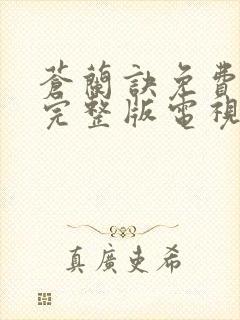 蒼蘭訣免費
完整版電視
真廣史希